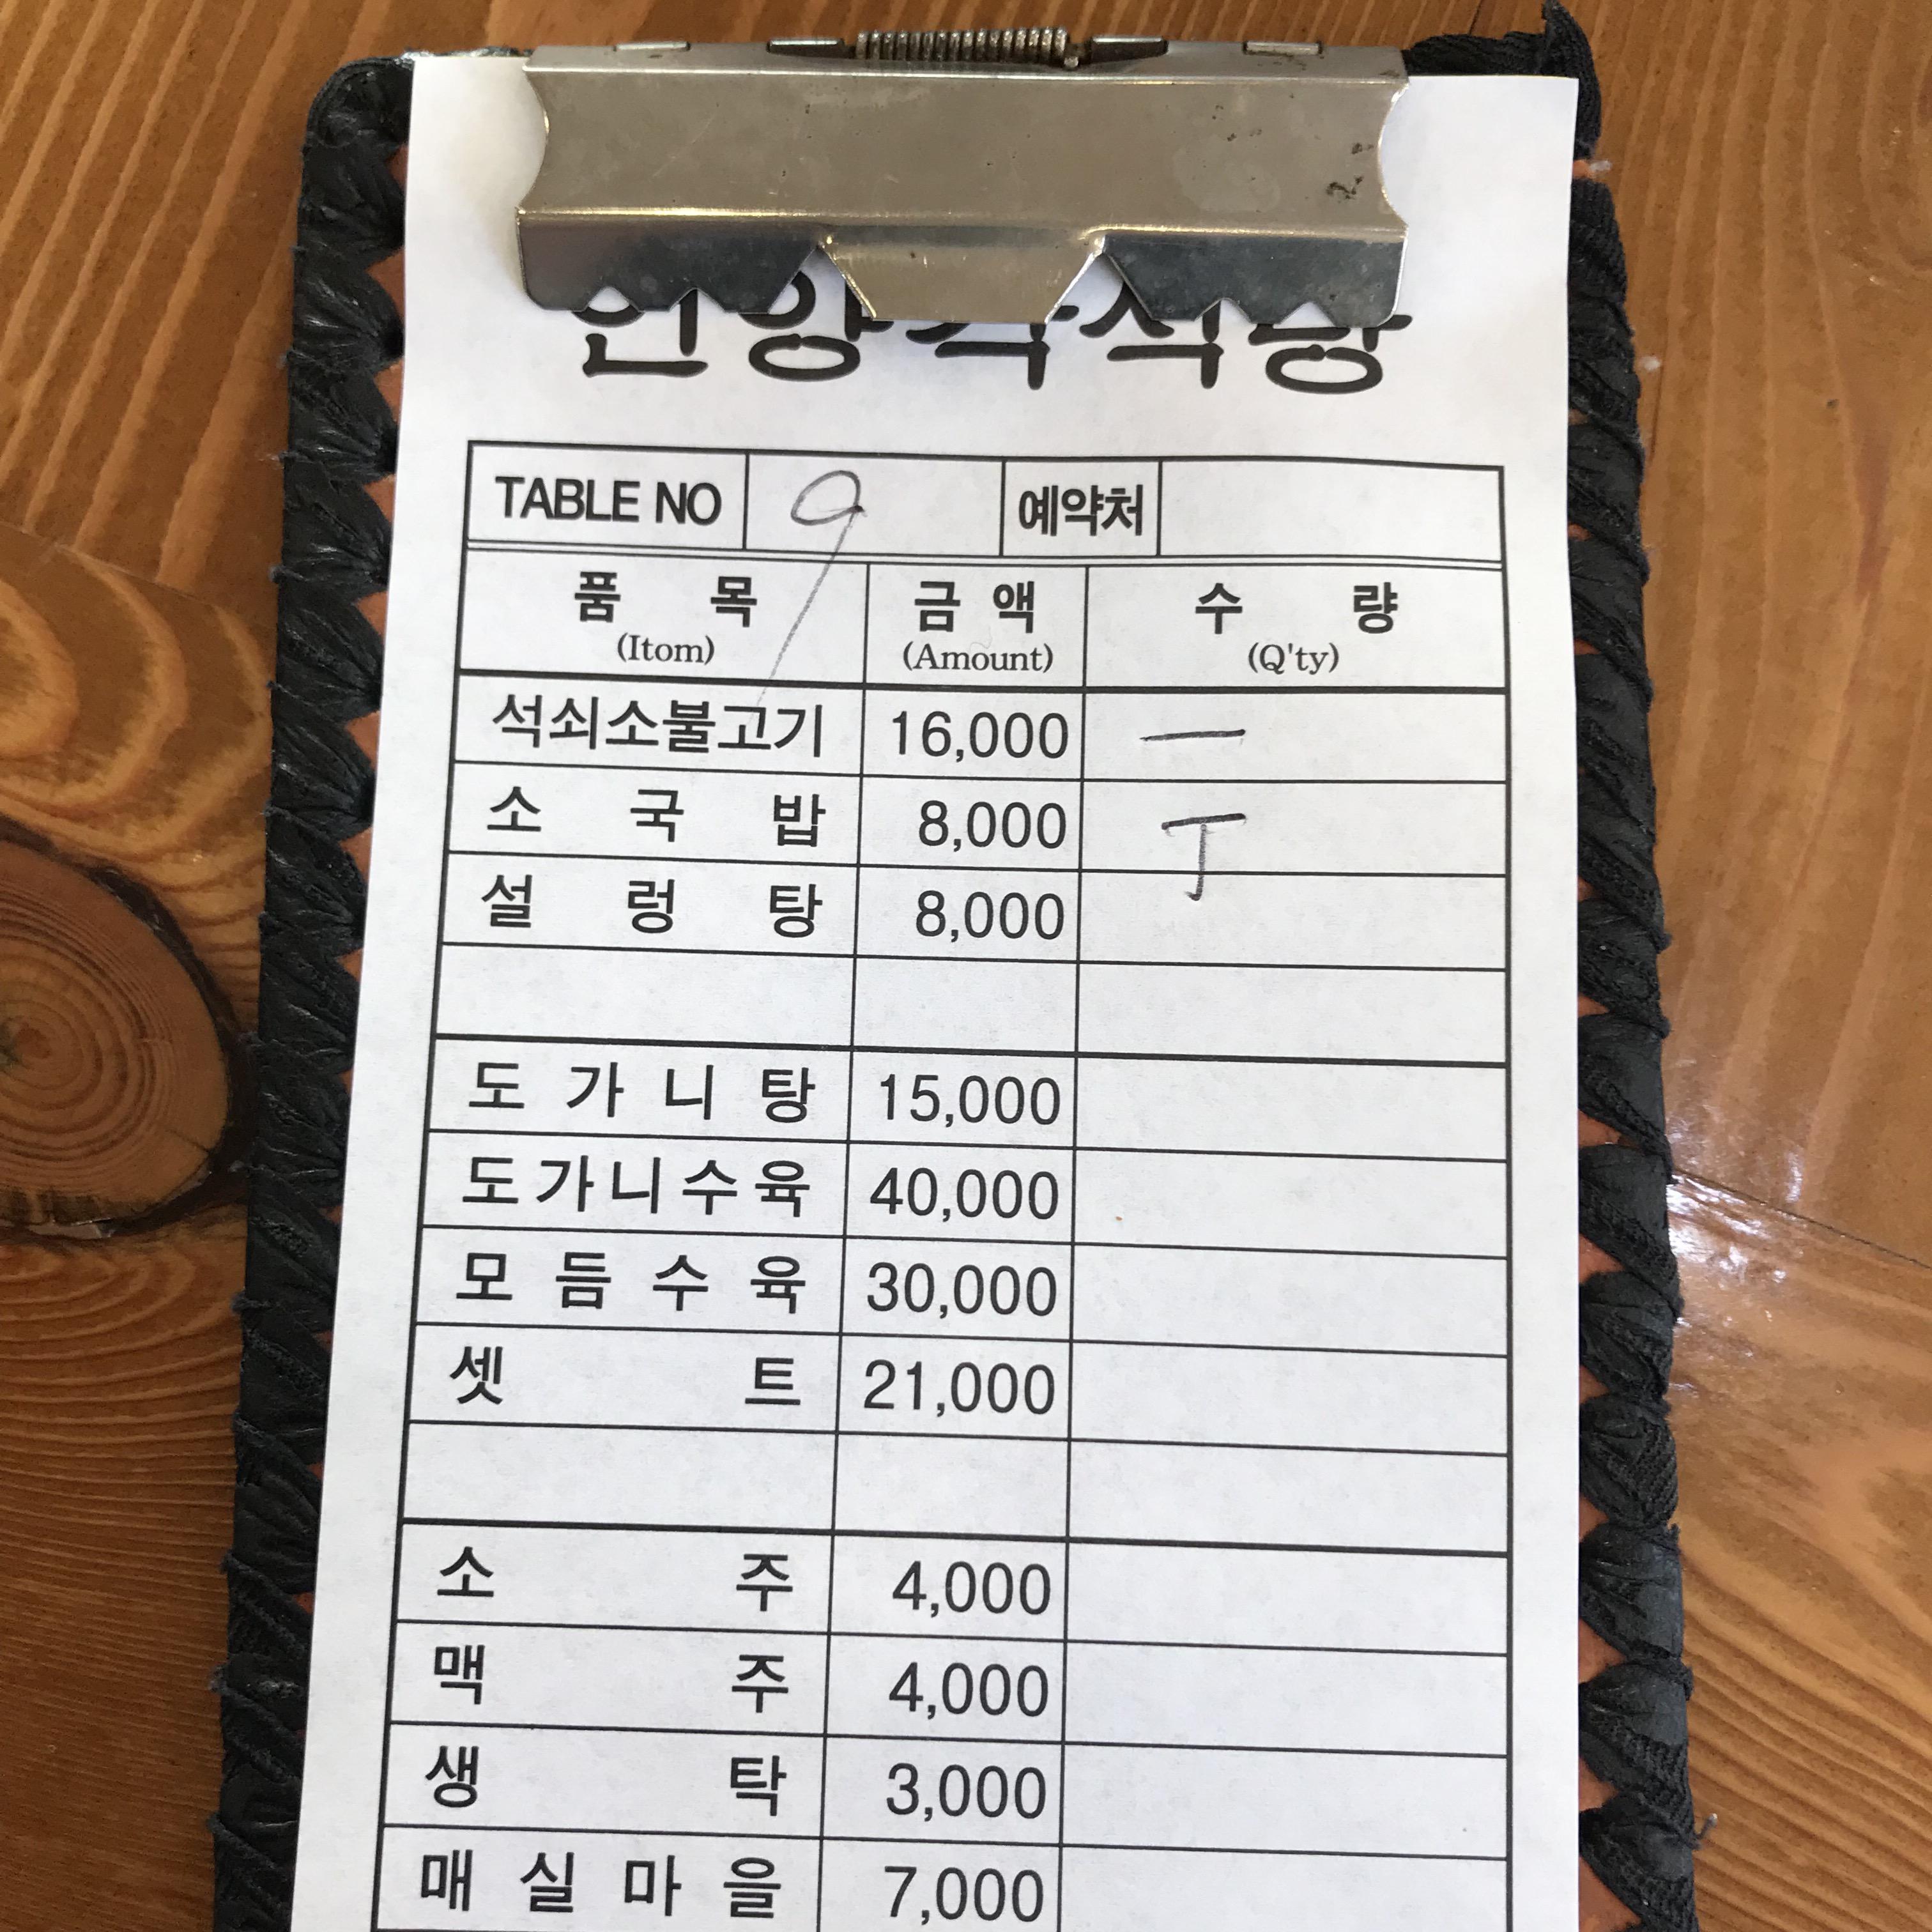 언양각식당
TABLE NO 9 예약처
품목 금액 수량
(Itom) (Amount) (Q'ty)
석쇠소불고기 16,000 一
소국밥 8,000 丅
설렁탕 8,000
도가니탕 15,000
도가니수육 40,000
모듬수육 30,000
셋트 21,000
소주 4,000
맥주 4,000
생탁 3,000
매실마을 7,000